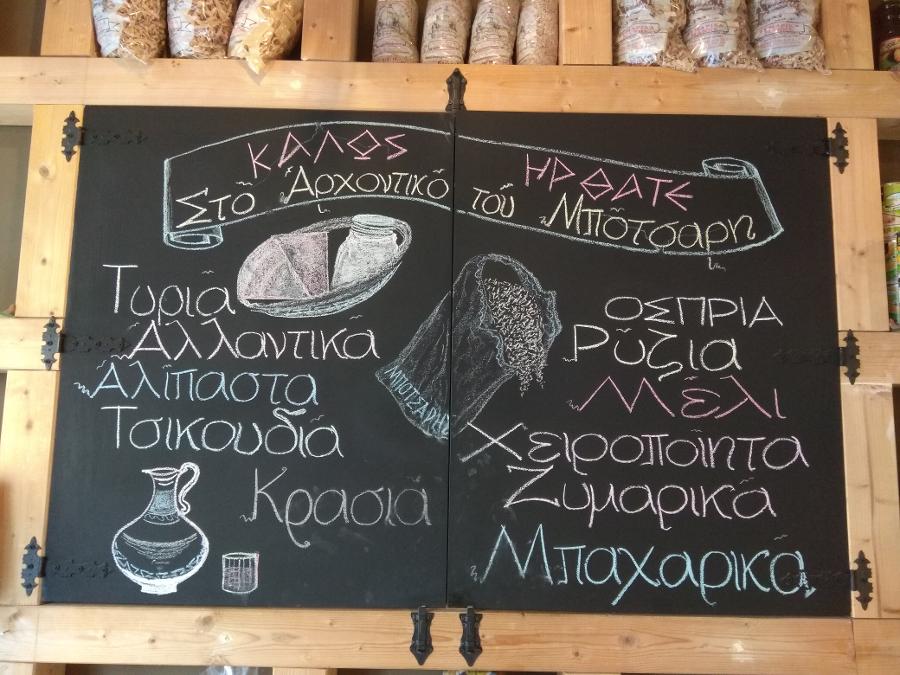 ΚΑΛΩΣ ΗΡΘΑΤΕ
Στὸ Ἀρχοντικὸ τοῦ Μπότσαρη
Τυριά
Ἀλλαντικά
Ἀλίπαστα
Τσικουδιά
Κρασιά
ΜΠΟΤΣΑΡΗΣ
ΟΣΠΡΙΑ
Ρύζια
Μέλι
Χειροποίητα
Ζυμαρικά
Μπαχαρικά